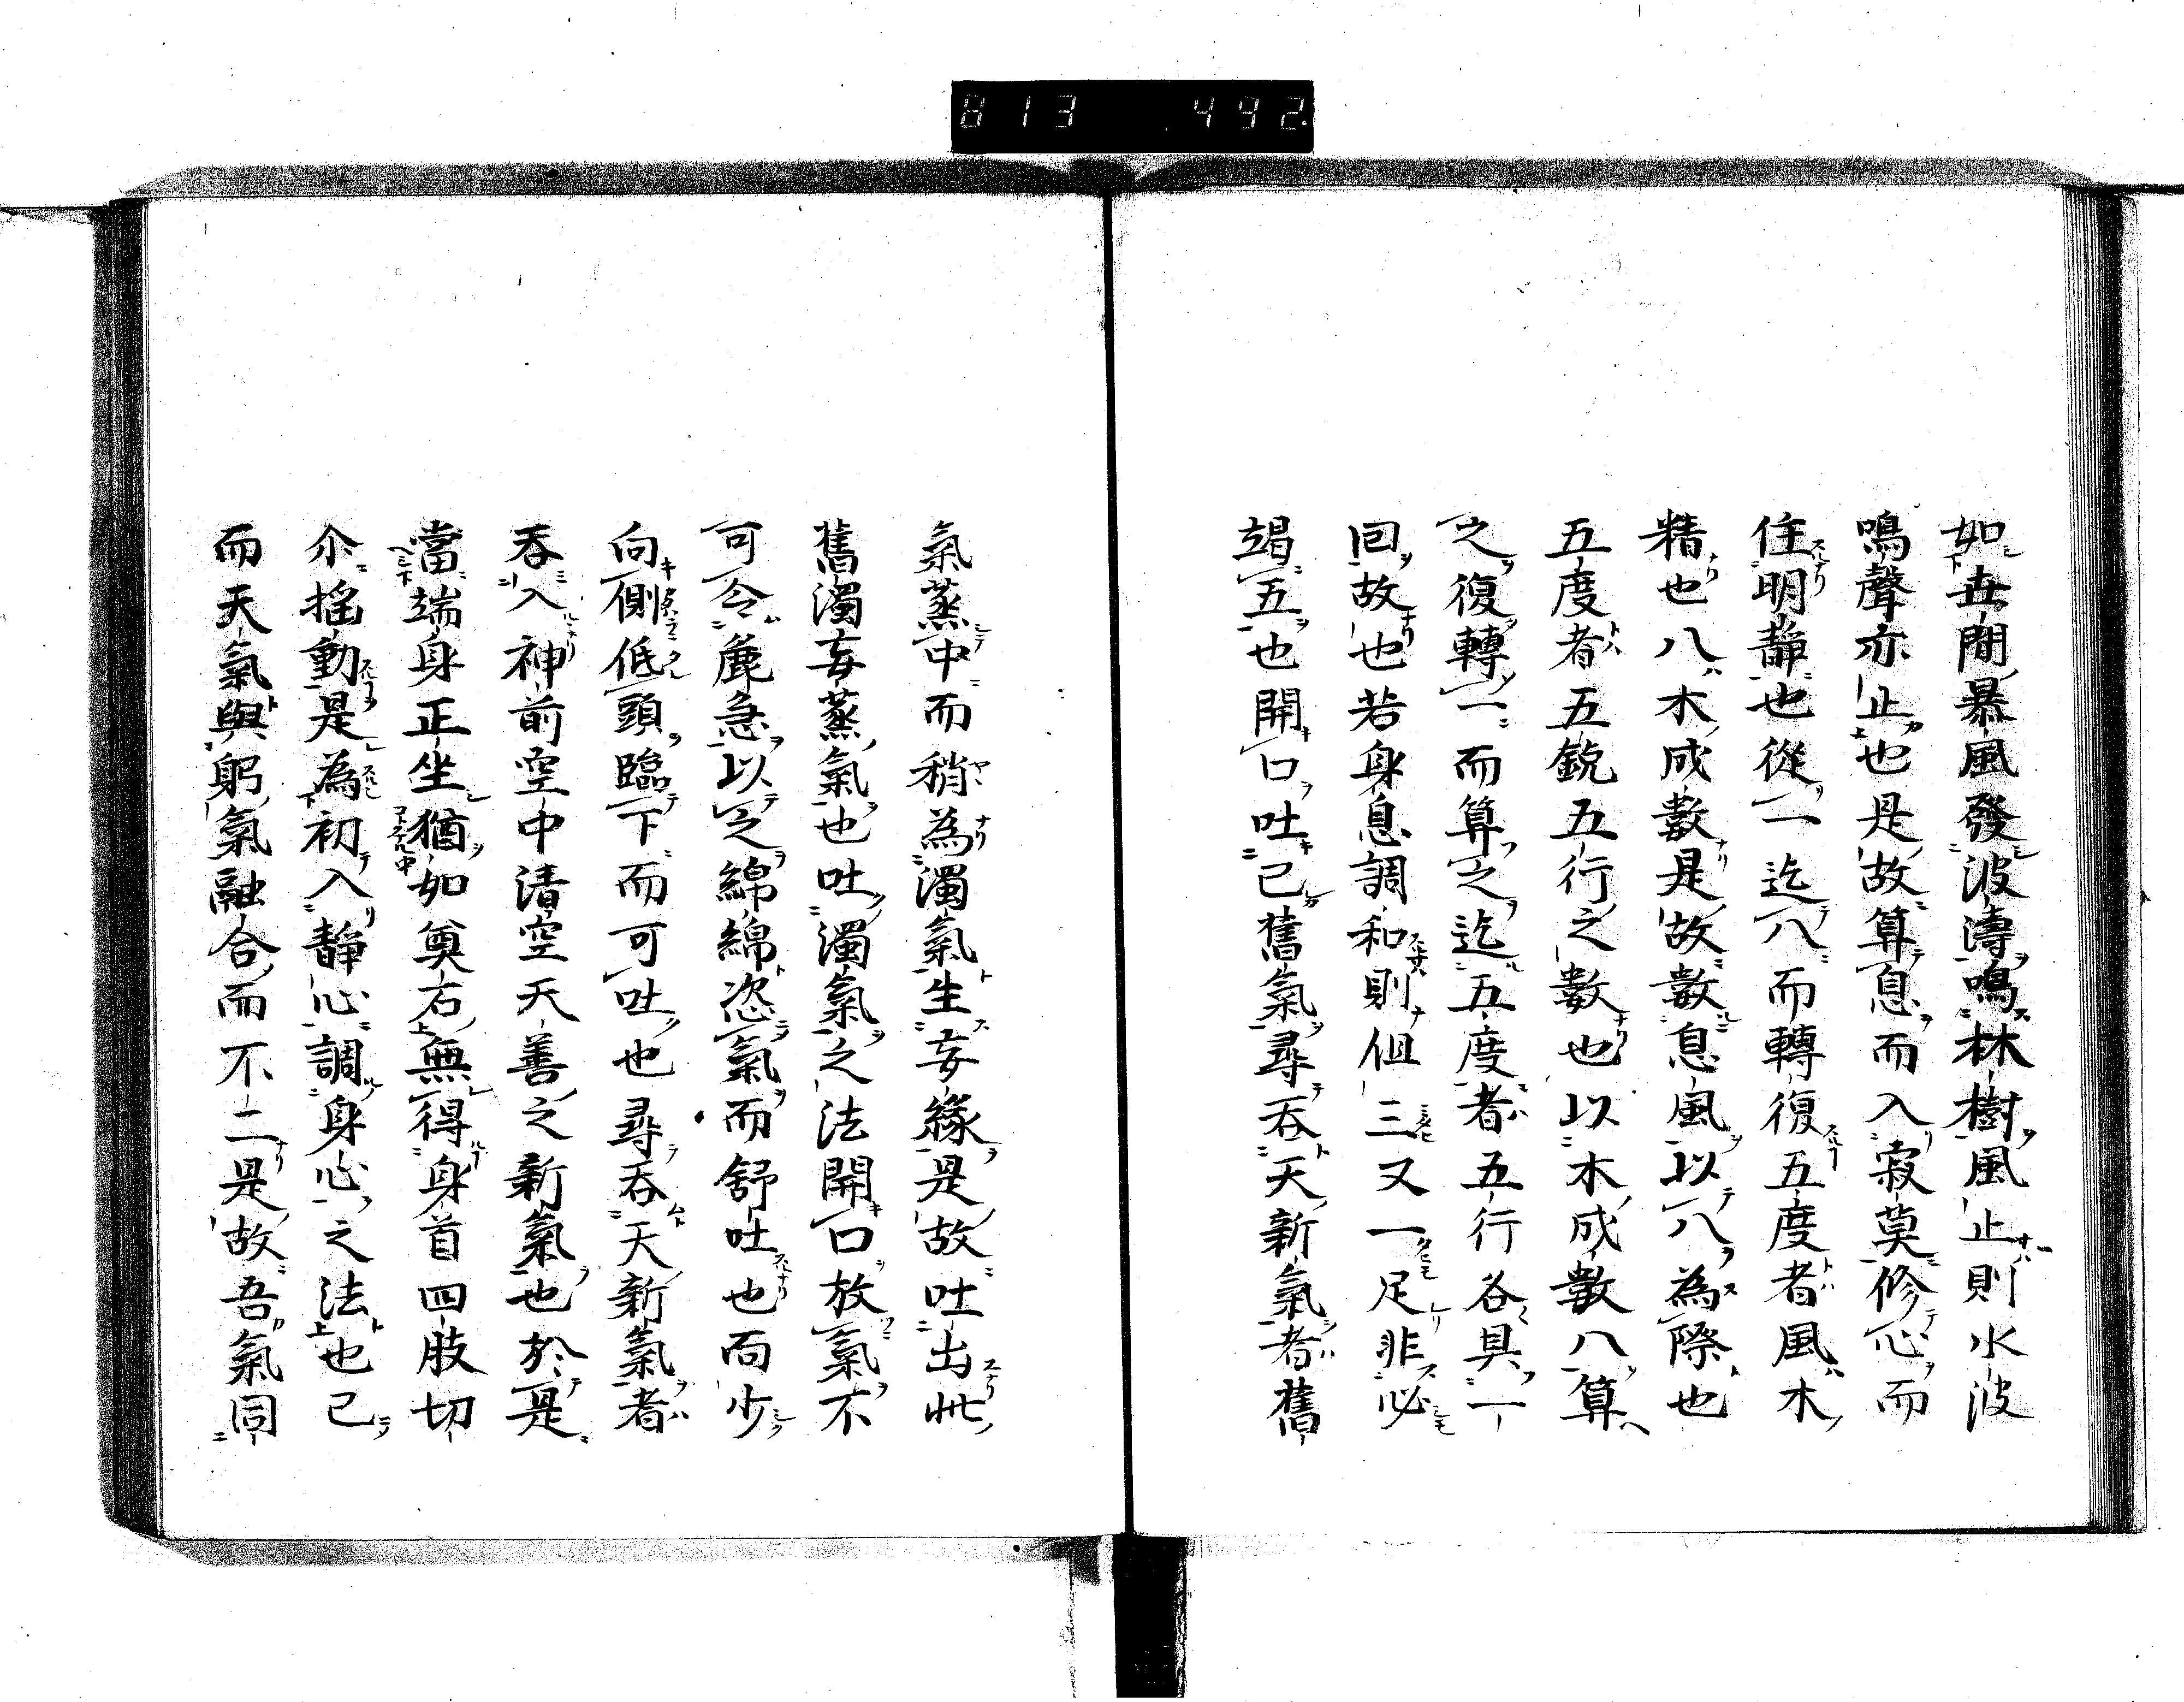 813 492
如世間暴風發波濤鳴林樹風止則水波
鳴聲亦止也是故算息而入寂莫修心而
住明靜也從一迄八而轉復五度者風木
精也八木成數是故數息風以八為際也
五度者五銳五行之數也以木成數八算
之復轉一而算之迄五度者五行各具一
回故也若身息調和則但三又一足非必
竭五也開口吐已舊氣尋吞天新氣者舊
氣蒸中而稍為濁氣生妄緣是故吐出此
舊濁妄蒸氣也吐濁氣之法開口放氣不
可令麁急以之綿綿恣氣而舒吐也而少
向側低頭臨下而可吐也尋吞天新氣者
吞入神前空中清空天善之新氣也於是
當端身正坐猶如奠右無得身首四肢切
尒搖動是為初入靜心調身心之法也已
而天氣與躬氣融合而不二是故吾氣同